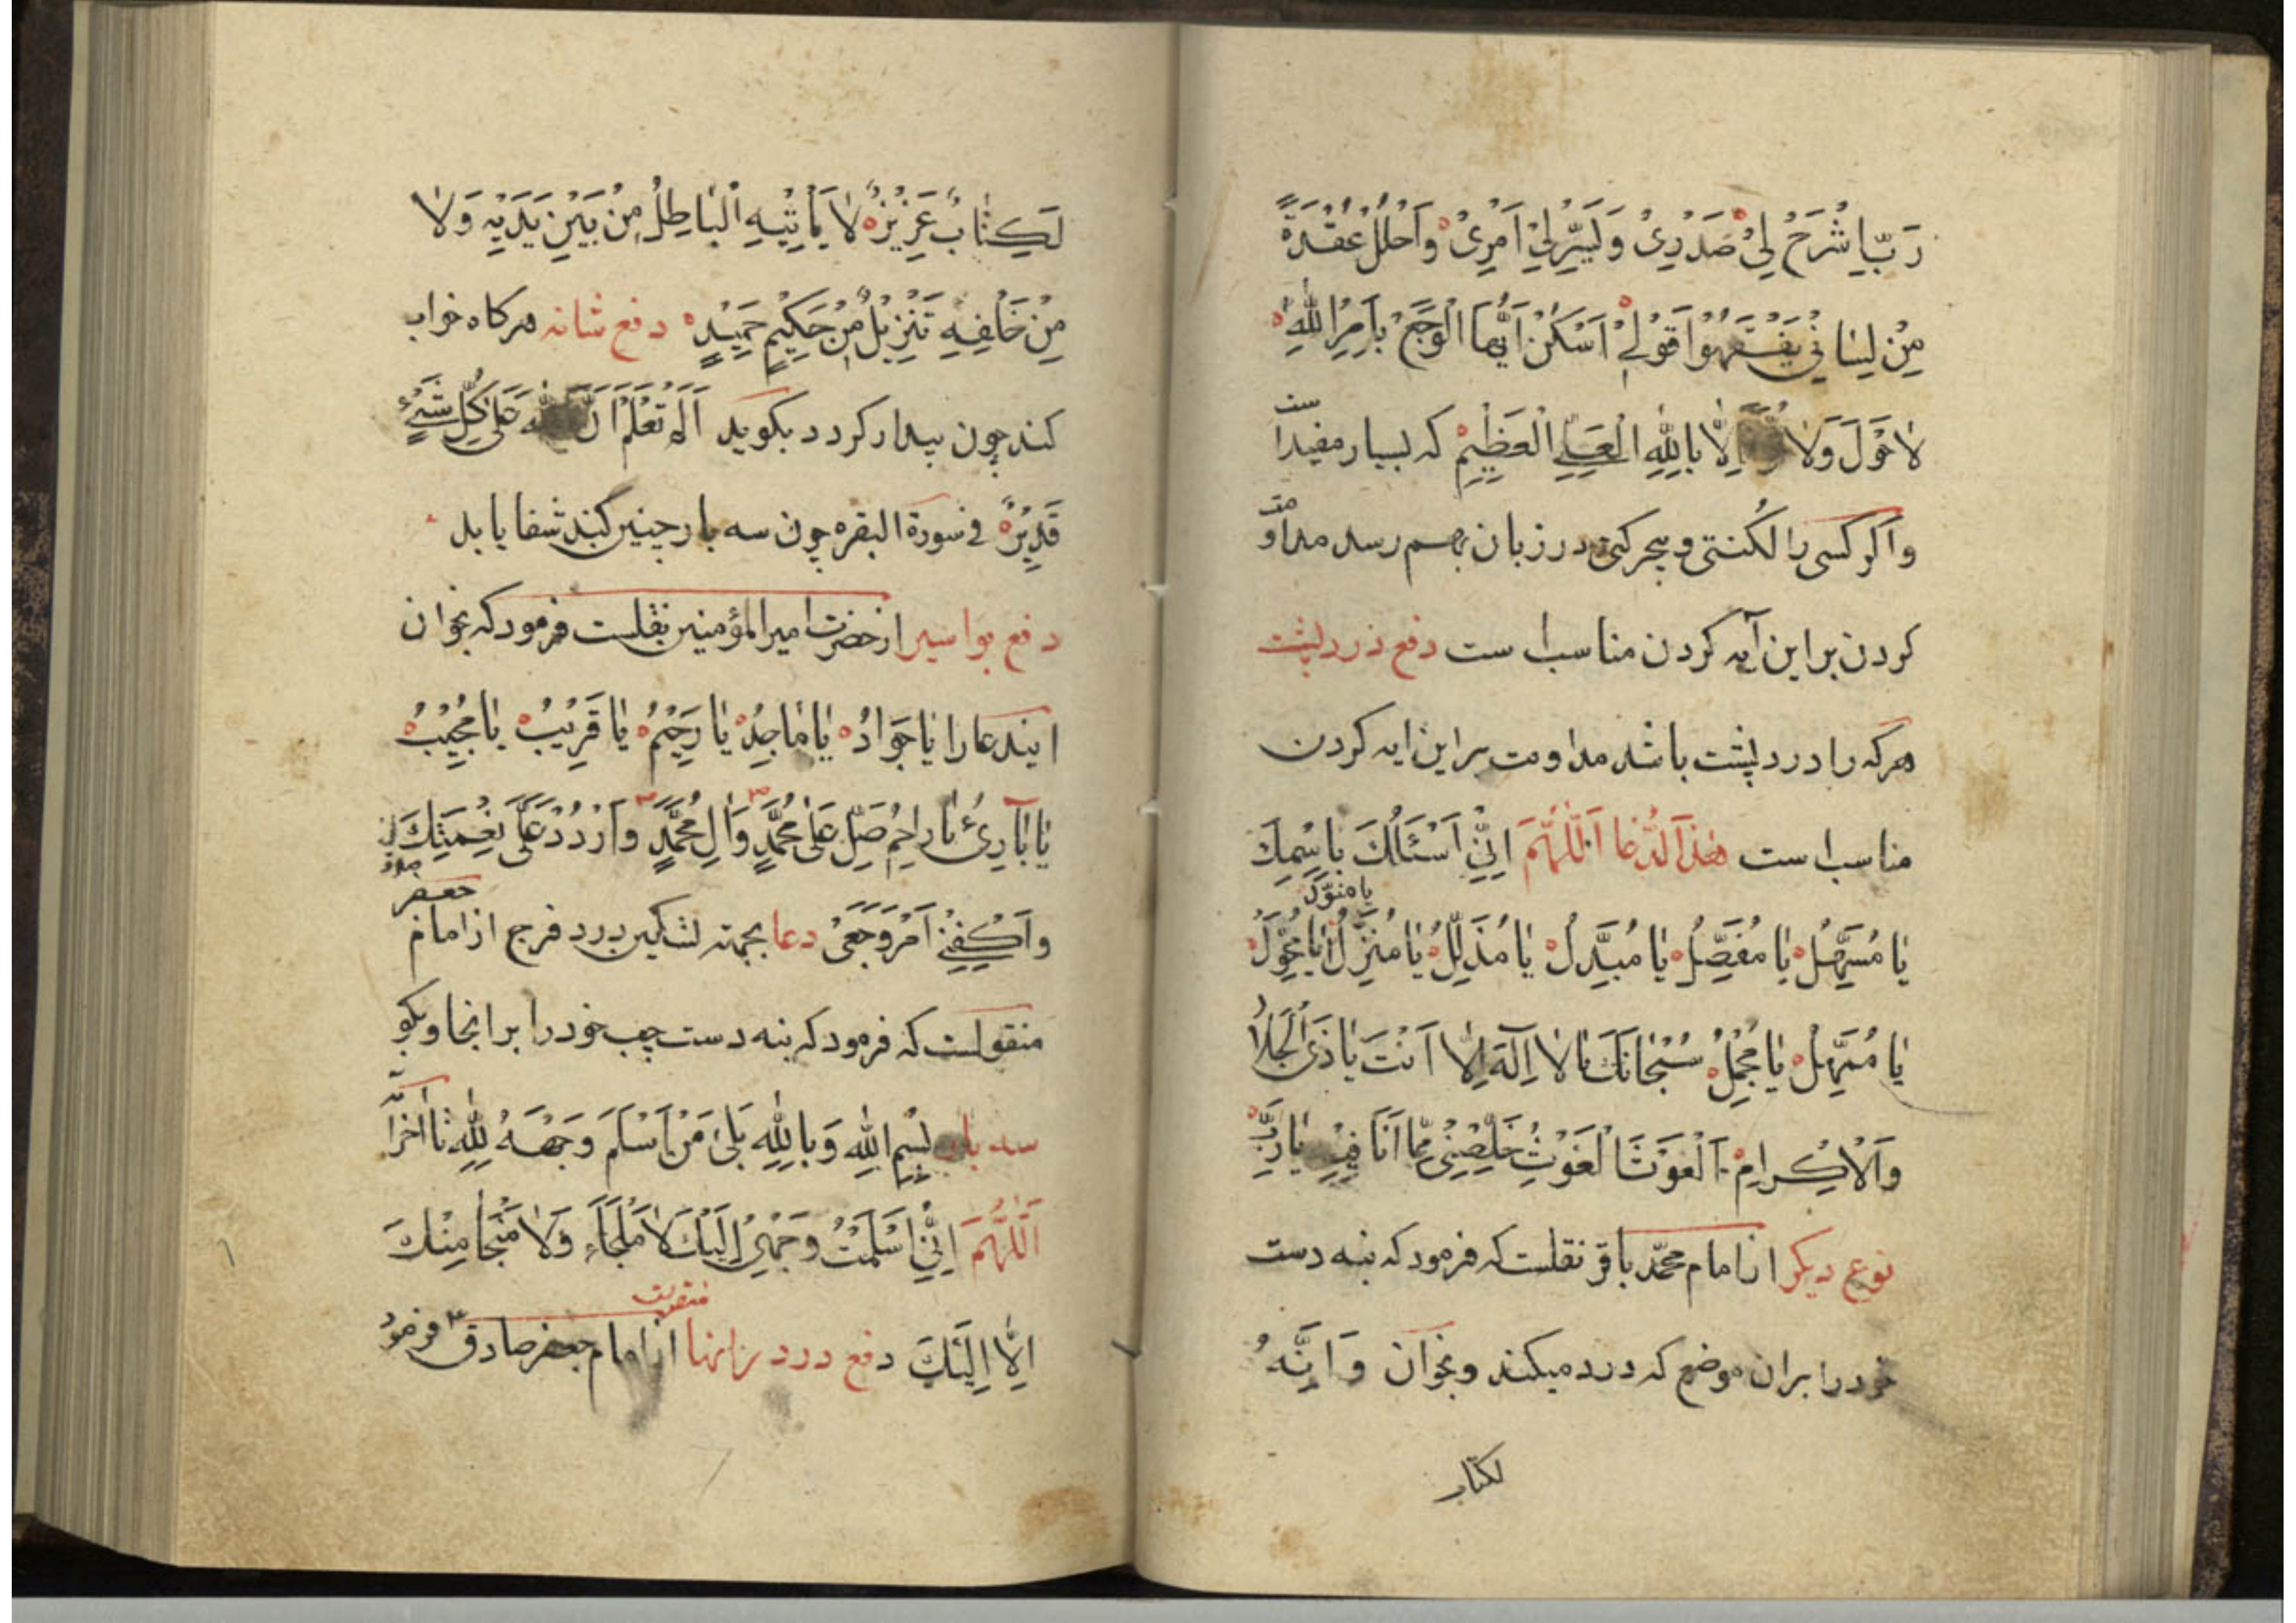 رَبِّ اشْرَحْ لِیْ صَدْرِیْ وَیَسِّرْ لِیْ اَمْرِیْ وَاَحْلُلْ عُقْدَةً
مِنْ لِسَانِیْ یَفْقَهُوْا قَوْلِیْ اُسْکُنْ اَیُّهَا الْوَجَعُ بِاَمْرِ اللّٰهِ
لاٰ حَوْلَ وَلاٰ اِلّٰا بِاللّٰهِ الْعَلِیِّ الْعَظِیْمِ که بسیار مفیدا ست
واکر کسی را لکنتی و در زبان بهم رسد مداو مت
کردن بر این آیه کردن مناسب است دفع درد پشت
هرکه را درد پشت باشد مداومت بر این ایه کردن
مناسب است هٰذَا الدُّعَا اَللّٰهُمَّ اِنِّیْ اَسْئَلُکَ بِاسْمِکَ
یا منوّل
یٰا مُسَهِّلُ یٰا مُفَصِّلُ یٰا مُبَدِّلُ یٰا مُذَلِّلُ یٰا مُنَزِّلُ یٰا
یٰا یٰا مُجْمِلُ سُبْحٰانَکَ یٰا لاٰ اِلٰهَ اِلّٰا اَنْتَ یٰا ذَی الْجَلاٰلِ
وَالْاِکْرامِ اَلْغَوْثَ الْغَوْثَ خَلِّصْنِیْ مِمّٰا اَنَا فِیْهِ یٰا رَبِّ
نوع دیکر از امام محمّد باقر نقلست که فرمود که بنه دست
خود را بران موضع که درد میکند و بخوان وَاِنَّهُ
لکتاب
لَکِتٰابٌ عَزِیْزٌ لاٰ یَأْتِیْهِ الْبٰاطِلُ مِنْ بَیْنِ یَدَیْهِ وَلاٰ
مِنْ خَلْفِهِ تَنْزِیْلٌ مِنْ حَکِیْمٍ حَمِیْدٍ دفع شانه هرکاه خواب
کند چون بیدار کردد بکوید اَلَمْ تَعْلَمْ اَنَّ اللّٰهَ عَلیٰ کُلِّ شَیْءٍ
قَدِیْرٌ فی سورة البقره چون سه بار چنین کند شفا یابد
دفع بواسیر از حضرت امیر المؤمنین نقلست فرمود که بخوان
ایندعا را یٰا جَوٰادُ یٰا مٰاجِدُ یٰا رَحِیْمُ یٰا قَرِیْبُ یٰا مُجِیْبُ
یٰا بٰارِئُ یٰا رٰاحِمُ صَلِّ عَلیٰ مُحَمَّدٍ وَاٰلِ مُحَمَّدٍ وَارْدُدْ عَلَیَّ نِعْمَتِکَ
وَاکْفِنِیْ اَمْرَ وَجَعِیْ دعا بجهته تسکین درد فرج از امام جعفر
منقولست که فرمود که بنه دست چپ خود را بر انجا و بکو
سه بار بِسْمِ اللّٰهِ وَبِاللّٰهِ بَلیٰ مَنْ اَسْلَمَ وَجْهَهُ لِلّٰهِ تا آخر
اَللّٰهُمَّ اِنِّیْ اَسْلَمْتُ وَجْهِیْ اِلَیْکَ لاٰ مَلْجَاءَ وَلاٰ مَنْجٰا مِنْکَ
اِلّٰا اِلَیْکَ دفع درد رانها از امام جعفر صادق فرمود